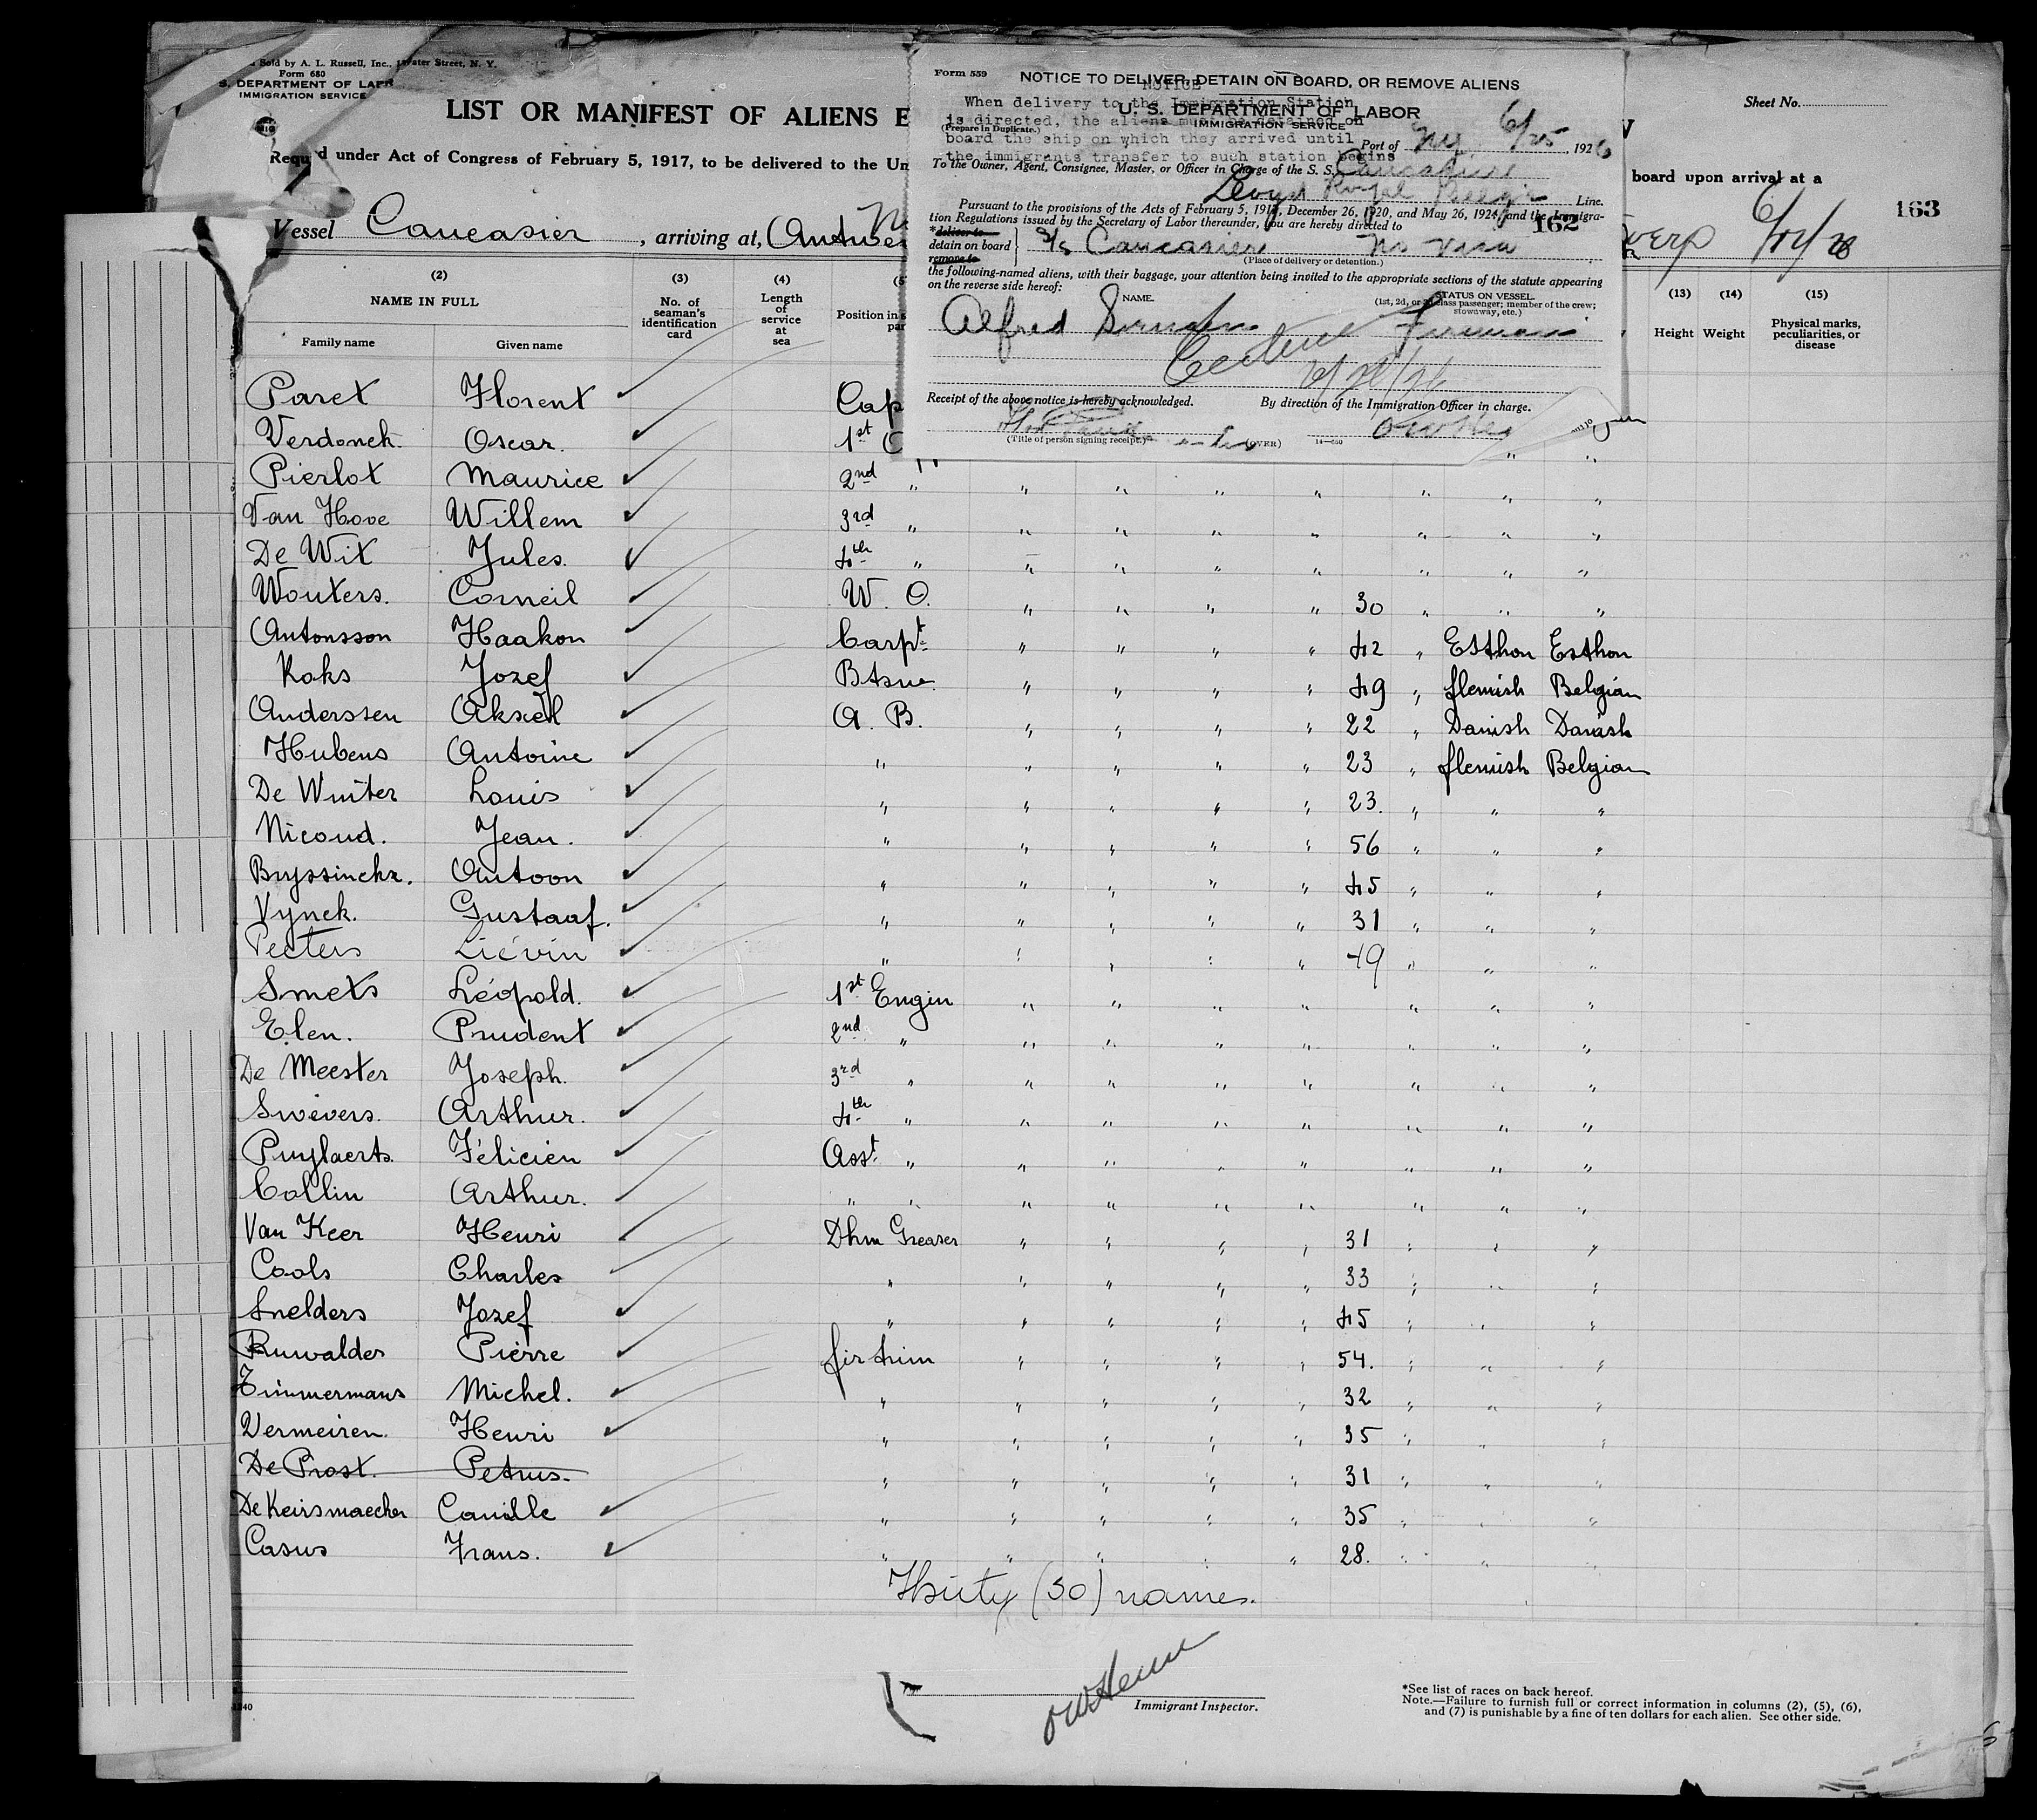 Sold by A. L. Russell, Inc., Water Street, N. Y.
Form 680
S. DEPARTMENT OF LABO
IMMIGRATION SERVICE
LIST OR MANIFEST OF ALIENS E
Requ d under Act of Congress of February 5, 1917, to be delivered to the Un
board upon arrival at a
Sheet No.
Vessel Caucasier, arriving at, (Antwe
verp 6/
163
Form 559
NOTICE TO DELIVER, DETAIN ON BOARD, OR REMOVE ALIENS
NOTICE
When delivery to the Immigration Station
is directed, the aliens must be detained on
board the ship on which they arrived until
the immigrants transfer to such station begins
U. S. DEPARTMENT OF LABOR
IMMIGRATION SERVICE
(Prepare in Duplicate.)
Port of NY 6/25, 1926
To the Owner, Agent, Consignee, Master, or Officer in Charge of the S. S. Caucasier
Lloyd Royal Belge Line.
Pursuant to the provisions of the Acts of February 5, 1917, December 26, 1920, and May 26, 1924, and the Immigra-
tion Regulations issued by the Secretary of Labor thereunder, you are hereby directed to
162
*deliver to
detain on board
remove to
S/S Caucasier No visa
(Place of delivery or detention.)
the following-named aliens, with their baggage, your attention being invited to the appropriate sections of the statute appearing
on the reverse side hereof:
NAME.
STATUS ON VESSEL
(1st, 2d, or 3d class passenger; member of the crew; stowaway, etc.)
Alfred Fireman
6/26/26
Receipt of the above notice is hereby acknowledged.
By direction of the Immigration Officer in charge.
(Title of person signing receipt.)
(OVER)
14—650
(2) (3) (4) (5 (13) (14) (15)
NAME IN FULL
Family name Given name
No. of seaman's identification card
Length of service at sea
Position in s
par
Height Weight
Physical marks, peculiarities, or disease
Paret Florent Cap
Verdonck. Oscar. 1st O " "
Pierlot Maurice 2nd " " " " " " " "
Van Hove Willem 3rd " " " " " " " "
De Wit Jules. 4th " " " " " " " "
Wouters. Corneil W. O. " " " " 30 " " "
Antonsson Haakon Carpt " " " " 42 " Esthon Esthon
Koks Jozef Btsw. " " " " 49 " flemish Belgian
Anderssen Aksel A. B. " " " " 22 " Danish Danish
Hubens Antoine " " " " " 23 " flemish Belgian
De Winter Louis " " " " " 23. " " "
Nicoud. Jean. " " " " " 56 " " "
Buyssinckx. Antoon " " " " " 45 " " "
Vynck. Gustaaf. " " " " " 31 " " "
Peeters Liévin " " " " " 49 " " "
Smets Léopold. 1st Engin " " " " " " "
Elen. Prudent 2nd " " " " " " " "
De Meester Joseph. 3rd " " " " " " " "
Swevers. Arthur. 4th " " " " " " " "
Puylaerts. Félicien Asst " " " " " " " "
Collin Arthur. " " " " " " " " "
Van Keer Henri Dhm Greaser " " " " 31 " " "
Cools Charles " " " " " 33 " " "
Snelders Jozef " " " " " 45 " " "
Ruwalder Pierre fir trim " " " " 54. " " "
Timmermans Michel. " " " " " 32 " " "
Vermeiren. Henri " " " " " 35 " " "
De Prost. Petrus. " " " " " 31 " " "
De Keirsmaecker Camille " " " " " 35 " " "
Casus Frans. " " " " " 28. " " "
Thirty (30) names.
Immigrant Inspector.
*See list of races on back hereof.
Note.—Failure to furnish full or correct information in columns (2), (5), (6),
and (7) is punishable by a fine of ten dollars for each alien. See other side.